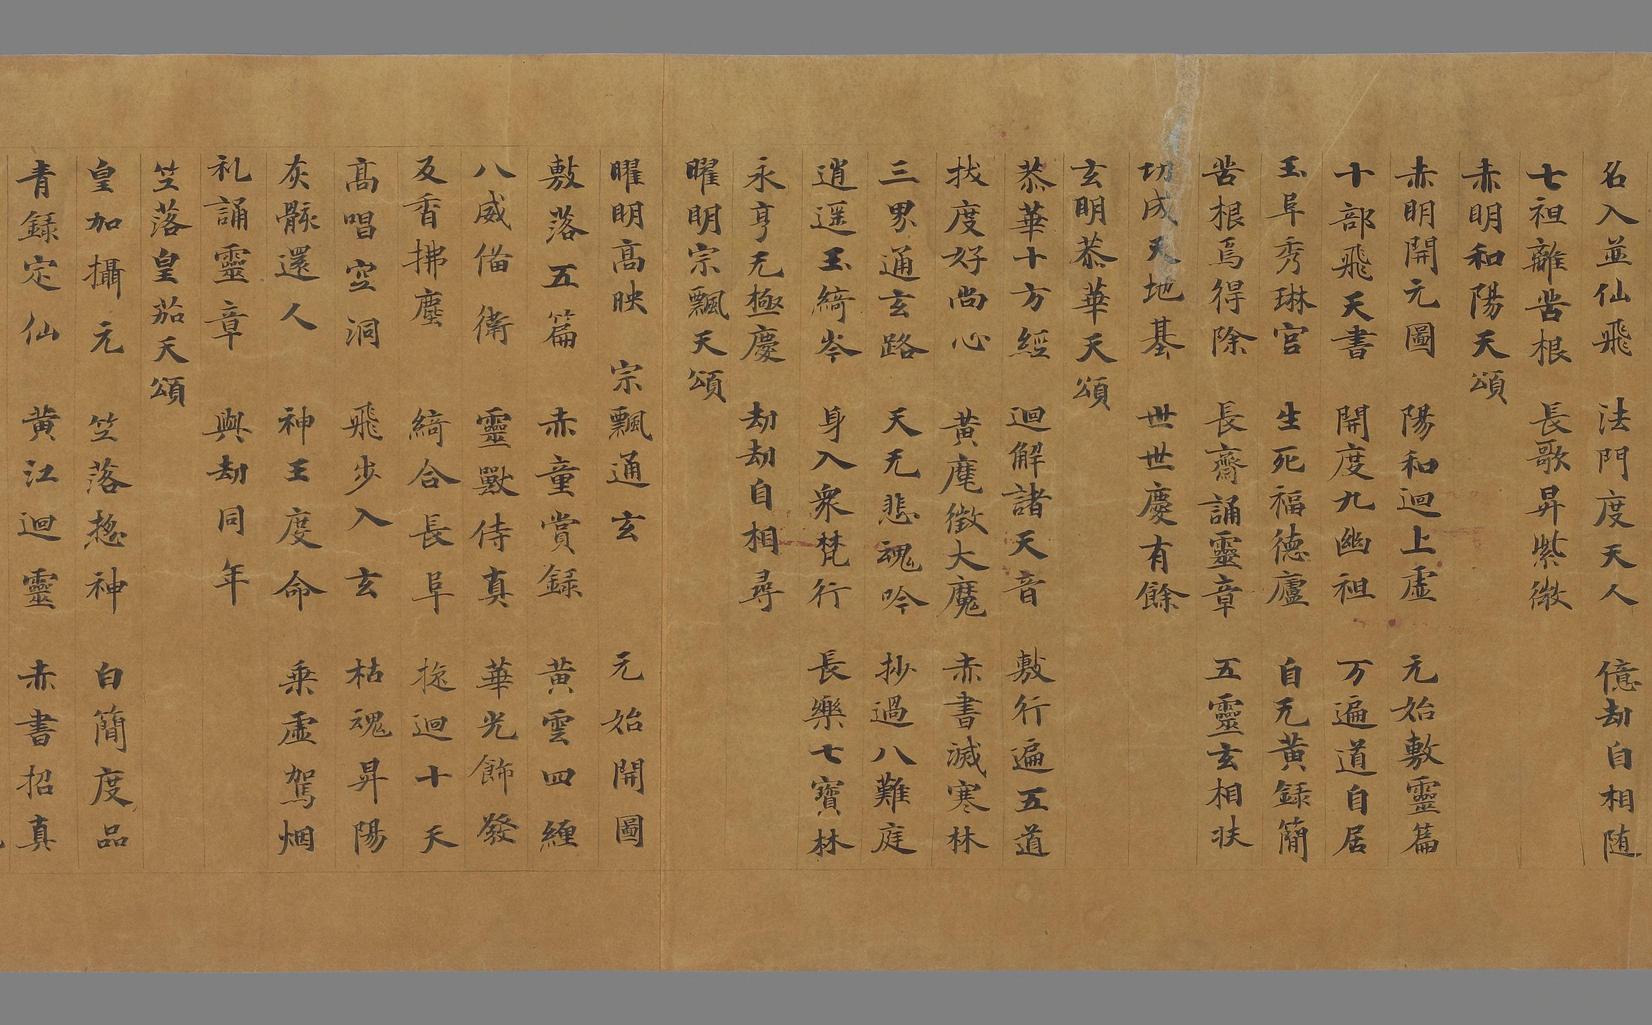 名入並仙飛 法門度天人 億劫自相随
七祖離苦根 長歌昇紫微
赤明和陽天頌
赤明開元圖 陽和迴上虛 元始敷靈篇
十部飛天書 開度九幽祖 万遍道自居
玉阜秀琳宮 生死福德廬 自无黃録簡
苦根焉得除 長齋誦靈章 五靈玄相扶
功成天地基 世世慶有餘
玄明恭華天頌
恭華十方經 迴解諸天音 敷行遍五道
拔度好尚心 黃麾徵大魔 赤書滅寒林
三界通玄路 天无悲魂吟 抄過八難庭
逍遥玉綺岑 身入衆梵行 長樂七寶林
永亨无極慶 劫劫自相尋
曜明宗飄天頌
曜明高映 宗飄通玄 元始開圖
敷落五篇 赤童賞録 黃雲四纏
八威俻衛 靈獸侍真 華光飾發
反香拂塵 綺合長阜 旋迴十天
高唱空洞 飛步入玄 枯魂昇陽
灰骸還人 神王度命 乘虛駕烟
礼誦靈章 與劫同年
竺落皇茄天頌
皇加攝元 竺落揔神 白簡度品
青録定仙 黃江迴靈 赤書招真